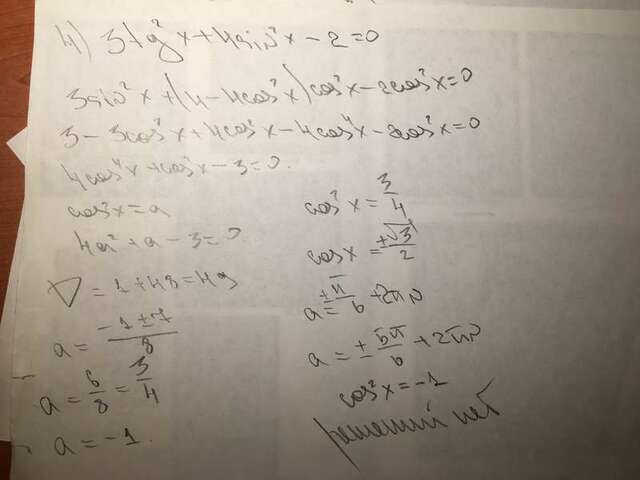 4) 3tg²x+4sin²x-2=0
3sin²x+(4-4cos²x)cos²x-2cos²x=0
3-3cos²x+4cos²x-4cos⁴x-2cos²x=0
4cos⁴x+cos²x-3=0.
cos²x=a
4a²+a-3=0
D=1+48=49
a=(-1±7)/8
a=6/8=3/4
a=-1.
cos²x=3/4
cosx=±√3/2
a=±π/6+2πn
a=±5π/6+2πn
cos²x=-1
решений нет